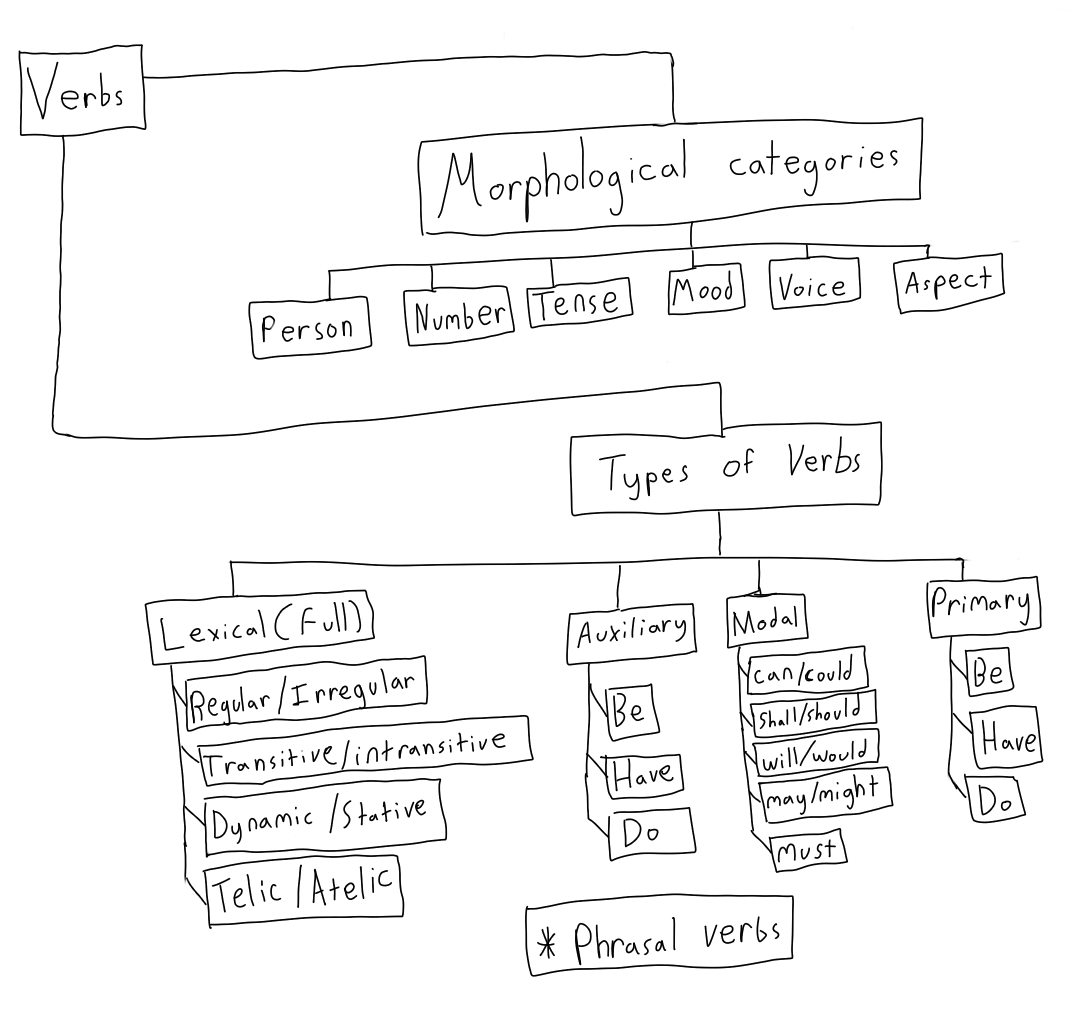 Verbs
Morphological categories
Person
Number
Tense
Mood
Voice
Aspect
Types of Verbs
Lexical (Full)
Regular/Irregular
Transitive/intransitive
Dynamic/Stative
Telic/Atelic
Auxiliary
Be
Have
Do
Modal
can/could
shall/should
will/would
may/might
Must
Primary
Be
Have
Do
* Phrasal verbs